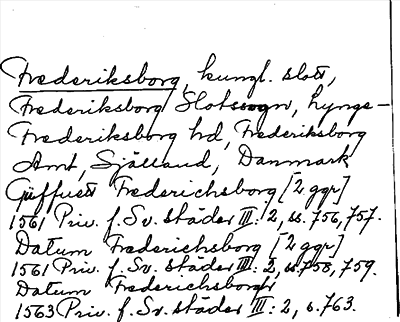 Frederiksborg, kungl. slott,
Frederiksborg Slotssogn, Lynge-
Frederiksborg hd, Frederiksborg
Amt, Sjælland, Danmark
Giffuett Frederichsborg [2 ggr]
1561 Priv. f. Sv. städer III: 2, ss. 756, 757.
Datum Frederichsborg [2 ggr]
1561 Priv. f. Sv. städer III: 2, ss. 758, 759.
Datum Frederichsborg
1563 Priv. f. Sv. städer III: 2, s. 763.